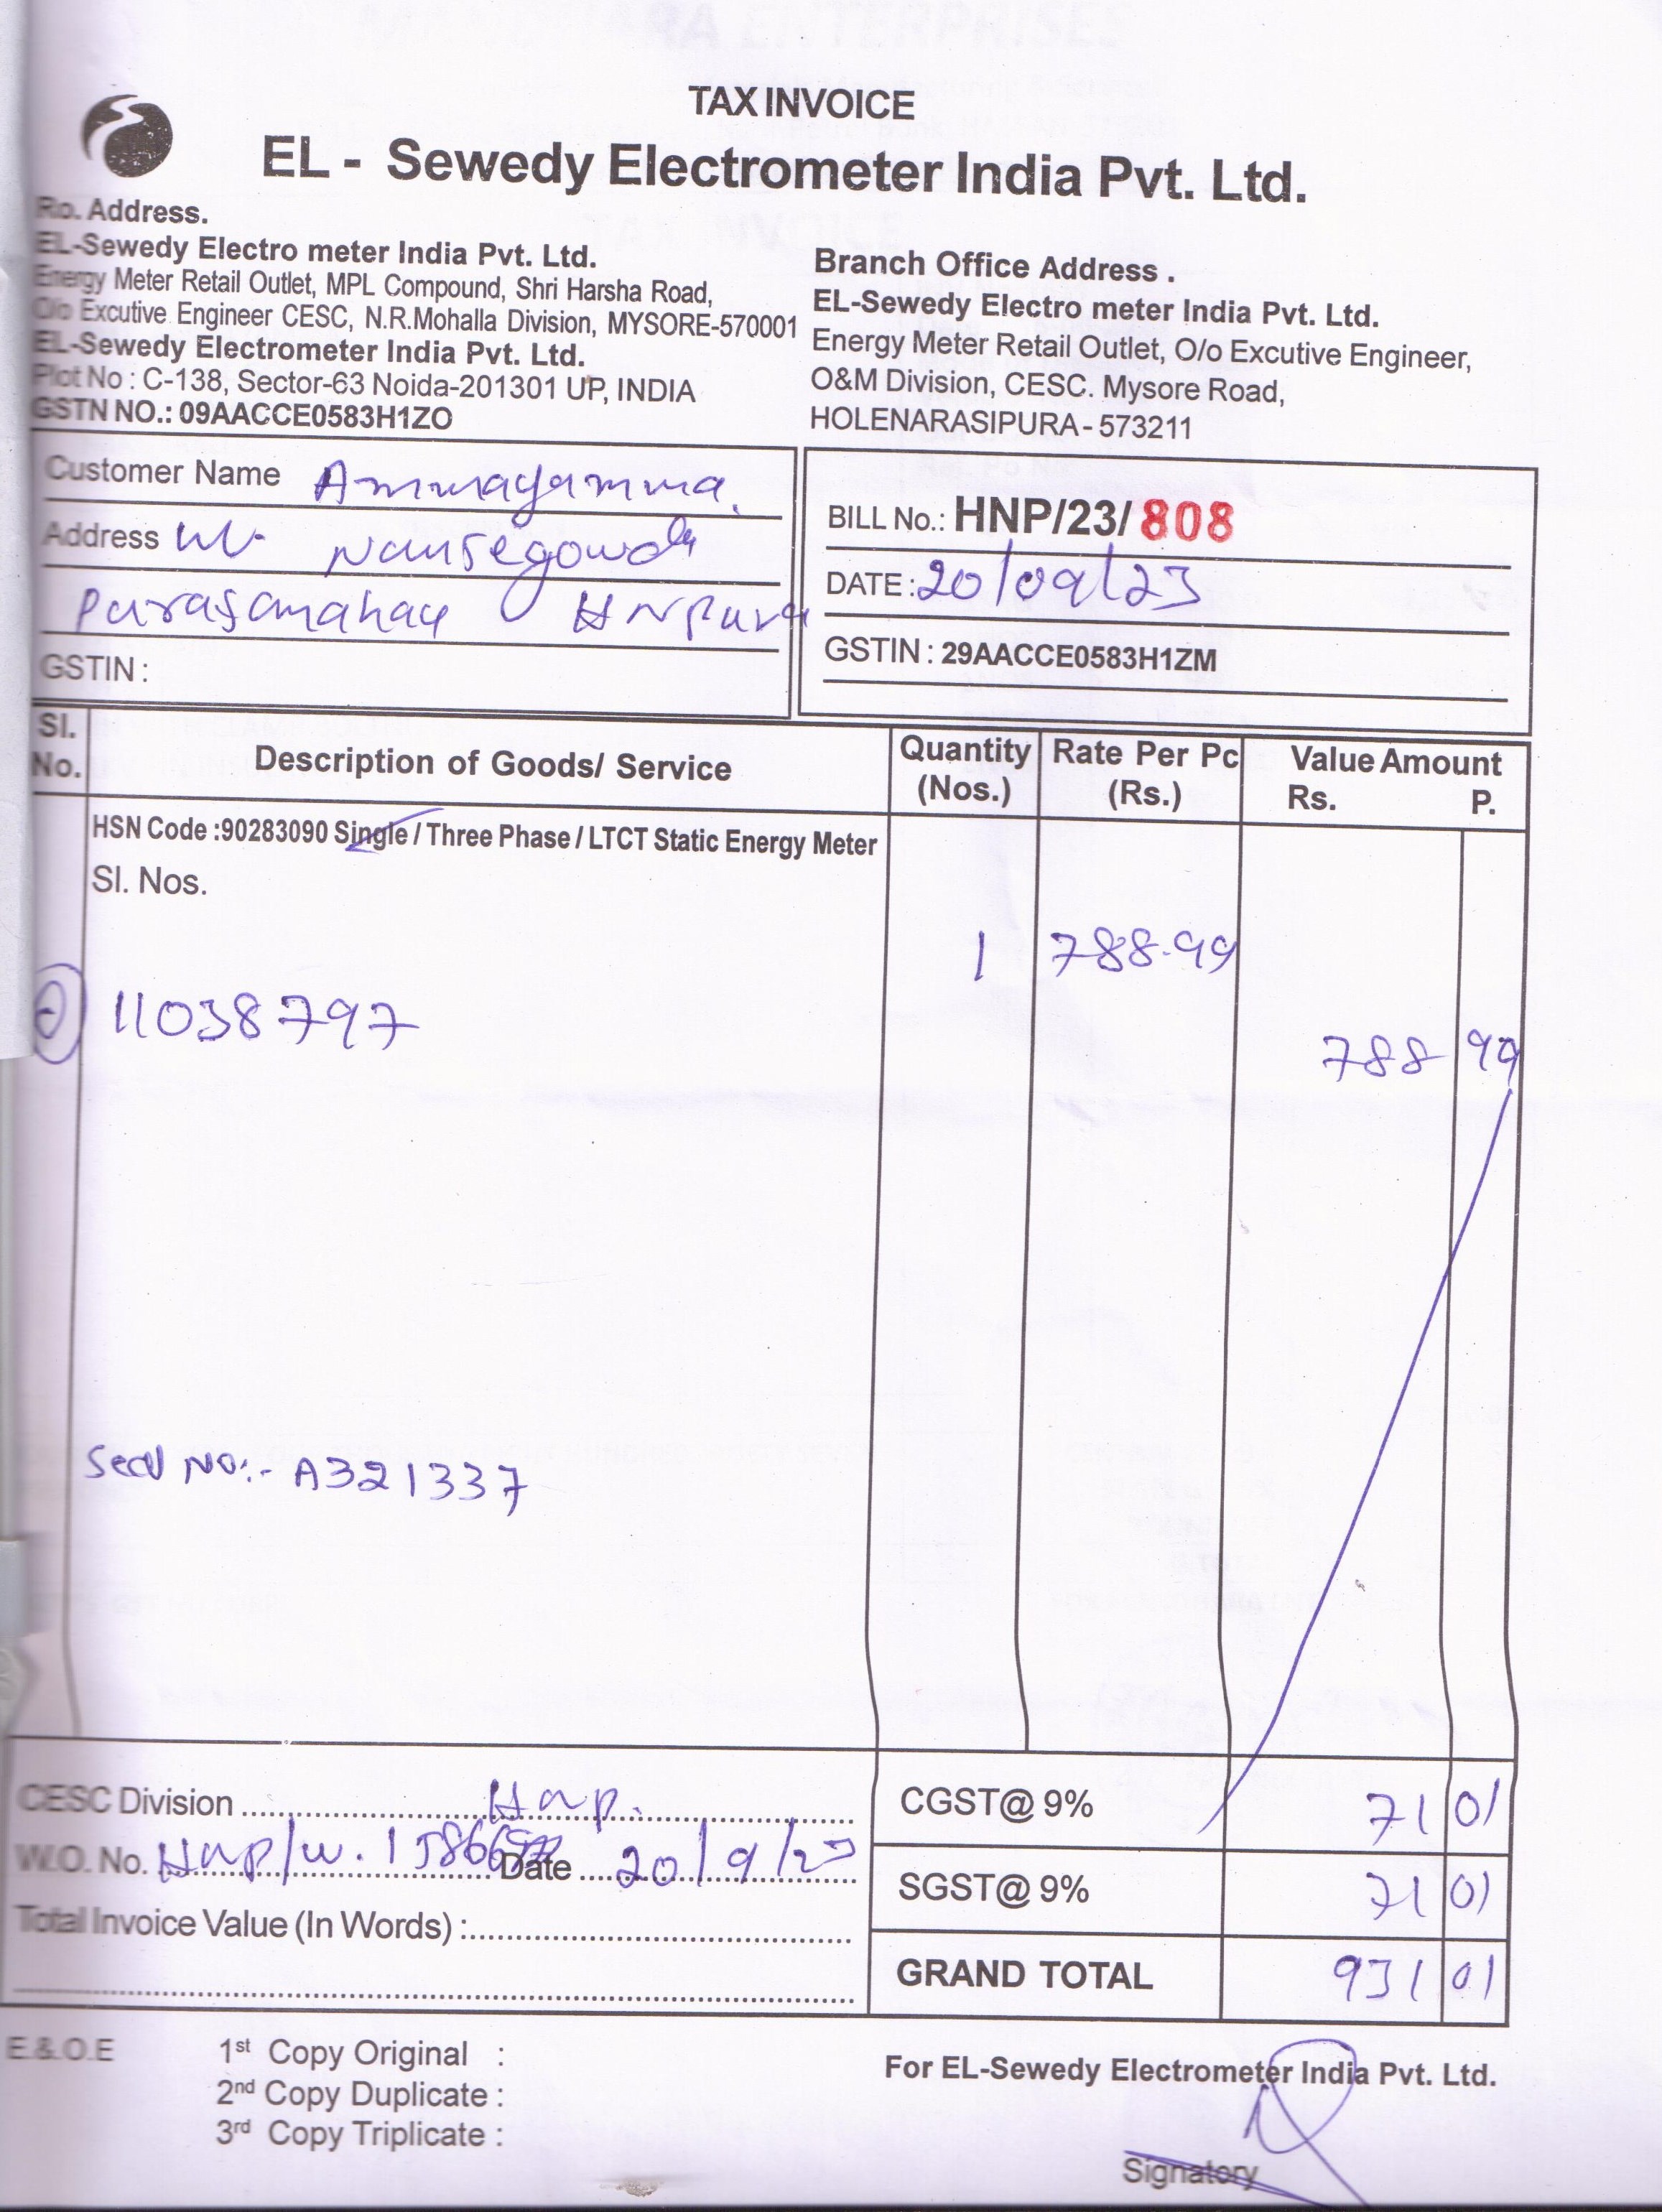 TAX INVOICE
EL - Sewedy Electrometer India Pvt. Ltd.
Ro. Address.
EL-Sewedy Electro meter India Pvt. Ltd.
Energy Meter Retail Outlet, MPL Compound, Shri Harsha Road,
O/o Excutive Engineer CESC, N.R.Mohalla Division, MYSORE-570001
EL-Sewedy Electrometer India Pvt. Ltd.
Plot No : C-138, Sector-63 Noida-201301 UP, INDIA
GSTN NO.: 09AACCE0583H1ZO
Branch Office Address .
EL-Sewedy Electro meter India Pvt. Ltd.
Energy Meter Retail Outlet, O/o Excutive Engineer,
O&M Division, CESC. Mysore Road,
HOLENARASIPURA - 573211
Customer Name Ammayamma.
Address
HNpura
GSTIN :
BILL No.: HNP/23/808
DATE : 20/09/23
GSTIN : 29AACCE0583H1ZM
Sl. No. Description of Goods/ Service Quantity (Nos.) Rate Per Pc (Rs.) Value Amount Rs. P.
HSN Code :90283090 Single / Three Phase / LTCT Static Energy Meter
Sl. Nos.
1 788.99
11038797
788 99
Seal No:- A321337
CESC Division Hnp.
W.O. No. Hnp/w. Date 20/9/23
Total Invoice Value (In Words) :
CGST@ 9% 71 01
SGST@ 9% 71 01
GRAND TOTAL 931 01
E.& O.E
1st Copy Original :
2nd Copy Duplicate :
3rd Copy Triplicate :
For EL-Sewedy Electrometer India Pvt. Ltd.
Signatory